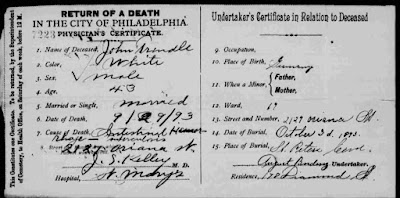 This Questions our Certificate. To be returned, by the Superintendent
of Cemetery, to Health Office, on Saturday of each week, before 12 M.
RETURN OF A DEATH
IN THE CITY OF PHILADELPHIA.
7223 PHYSICIAN'S CERTIFICATE.
1. Name of Deceased, John
2. Color, White
3. Sex, Male
4. Age, 43
5. Married or Single, Married
6. Date of Death, 9/29/93
7. Cause of Death, Intestinal
tuberculosis
2127 Oriana St.
J. S. Kelley
Hospital, St. Mary's
Undertaker's Certificate in Relation to Deceased
9. Occupation,
10. Place of Birth, Germany
11. When a Minor, { Father,
Mother,
12. Ward, 19
13. Street and Number, 2127 Oriana St.
14. Date of Burial, October 3d. 1893.
15. Place of Burial, St Peters Cem.
Undertaker.
Residence, Diamond St